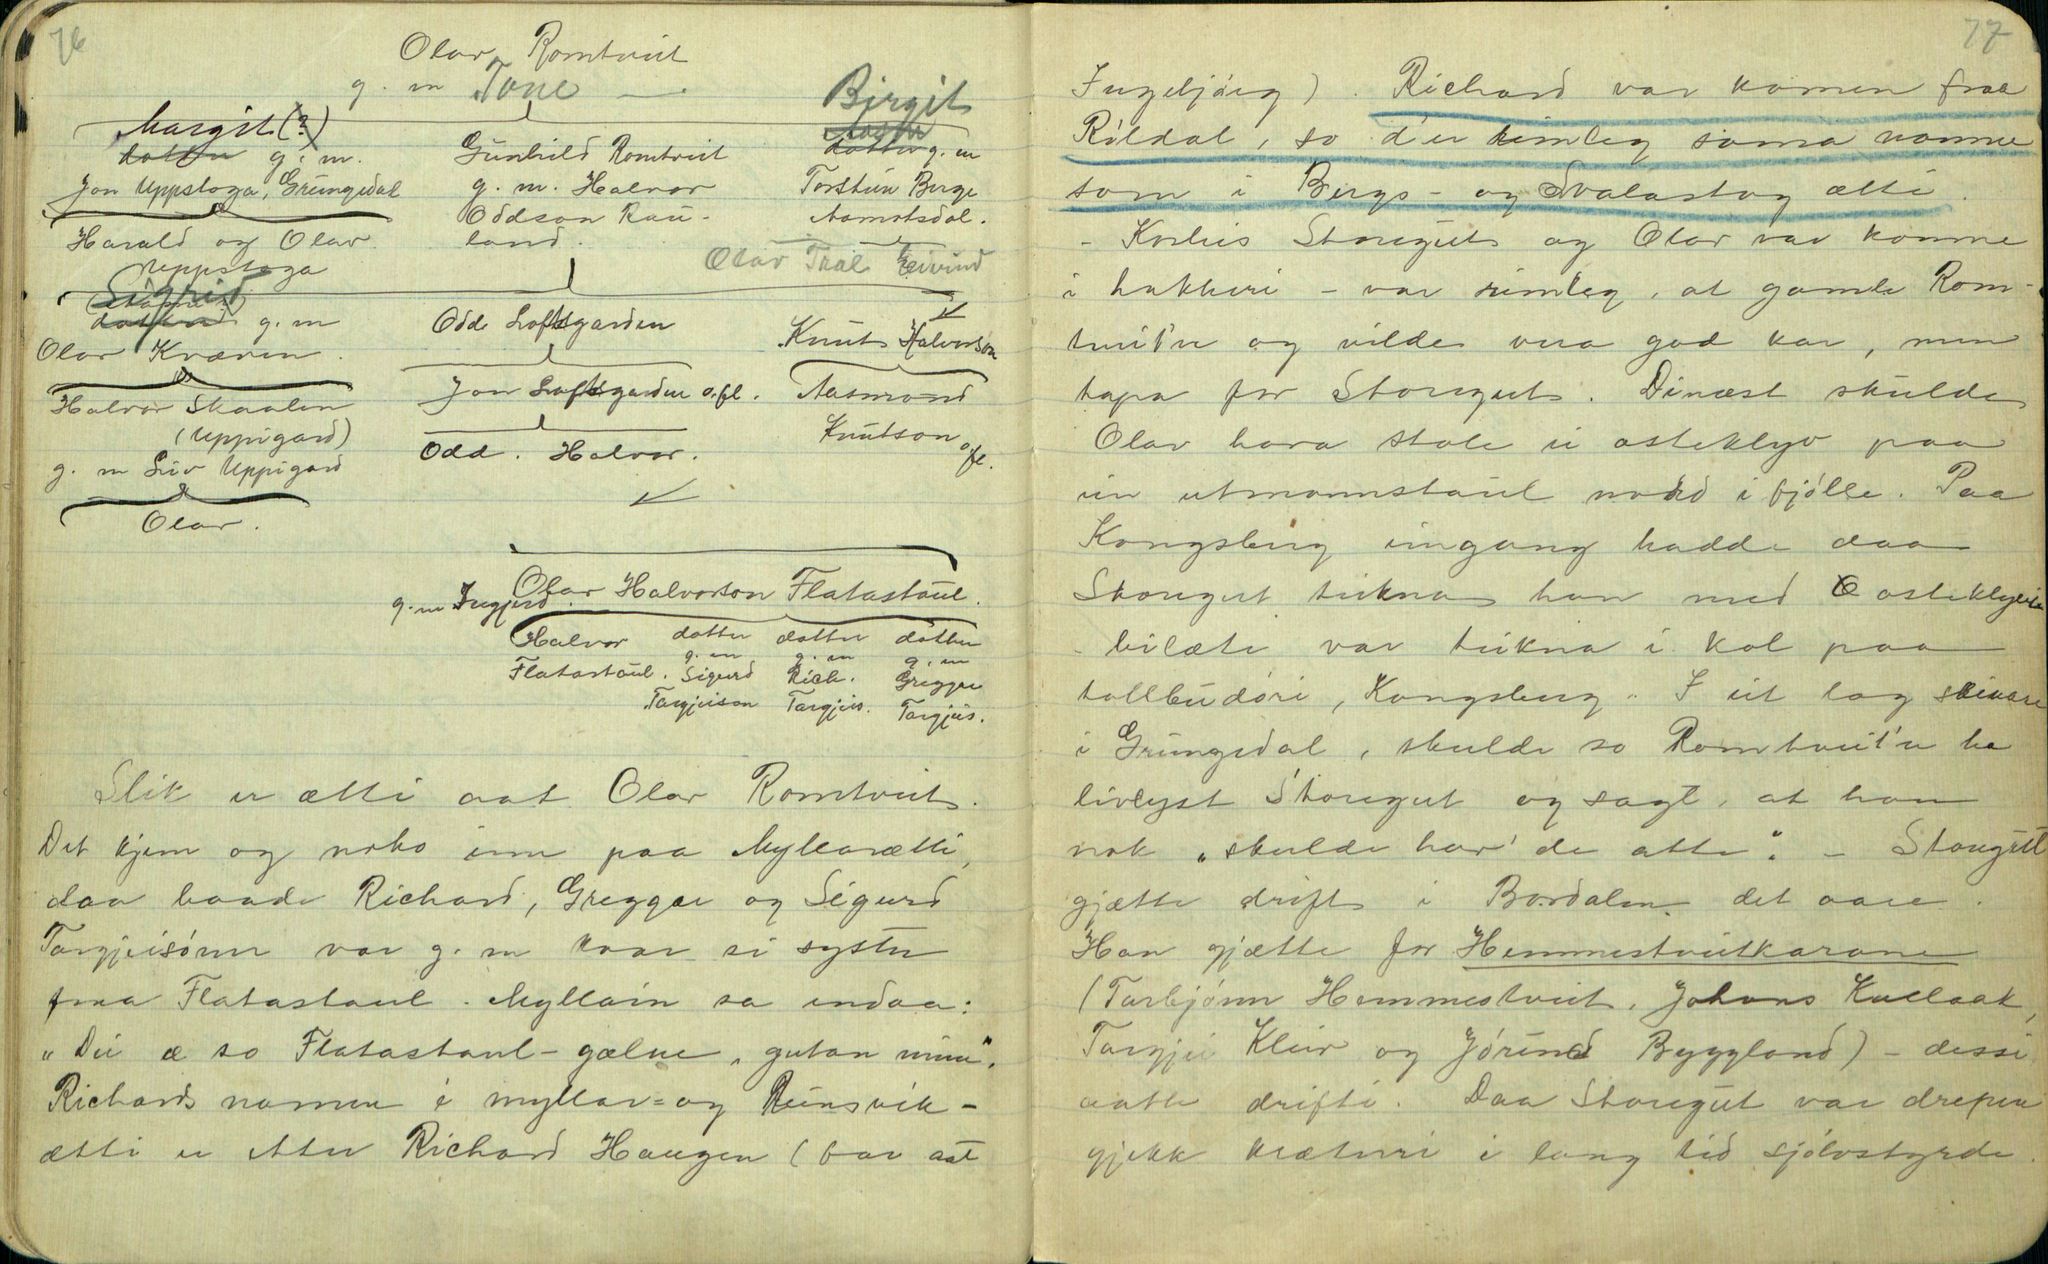 76
Olav Romtveit
g. m Tone —.
Margit (?)
dotter g. m.
Jon Uppstoga, Grungedal
Harald og Olav
Uppstoga
Gunhild Romtveit
g. m. Halvor
Oddson Rau-
land.
Birgit
dotter g. m
Torstein Berge
Aamotsdal.
Olav Tral Eivind
Sigrid
dotter g. m
Olav Kvæven.
Halvor Skaalen
(Uppigard)
g. m Liv Uppigard
Olav.
Odd Loftsgarden
Jon Loftsgarden o.fl.
Odd. Halvor.
Knut Halvorson
Aasmond
Knutson o.fl.
Olav Halvorson Flatastaul.
g. m Ingjerd
Halvor dotter dotter dotter
g. m g. m g. m
Flatastaul. Sigurd Rich. Greggar
Targjeison Targjeis. Targjeis.
Slik er ætti aat Olav Romtveit.
Det kjem og noko inn paa Myllarætti,
daa baade Richard, Greggar og Sigurd
Targjeisónn var g. m kvar si syster
fraa Flatastaul. Myllain sa endaa:
"Dei æ so Flatastaul-gælne, gutan mine".
Richards namnen i myllar= og Reinsvik-
ætti er etter Richard Haugen (far aat
77
Ingebjórg). Richard var komen fraa
Róldal, so d'er rimleg sama namne
som i Bergs- og Svalastog ætti.
- Korleis Storegut og Olav var komne
i hakkeri - var rimleg, at gamle Rom-
tveit'n og vilde vera god kar, men
tapa for Storegut. Dinæst skulde
Olav hava stole ei osteklyv paa
ein utmannstaul nord i fjólle. Paa
Kongsberg eingong hadde daa
Storegut teikna han med osteklyvi
- bilæte var teikna i kol paa
tollbudóri, Kongsberg. I eit lag seinare
i Grungedal, skulde so Romtveit'n ha
livlyst Storegut og sagt, at han
nok "skulde hav' de atte". - Storegut
gjætte drift i Bordalen det aare.
Han gjætte for Hemmestveitkarane
(Tarbjónn Hemmestveit, Johans Kvelaak,
Targjei Kleiv og Jórund Byggland) - dessi
aatte drifti. Daa Storegut var drepen
gjekk kræturi i lang tid sjólvstyrde.